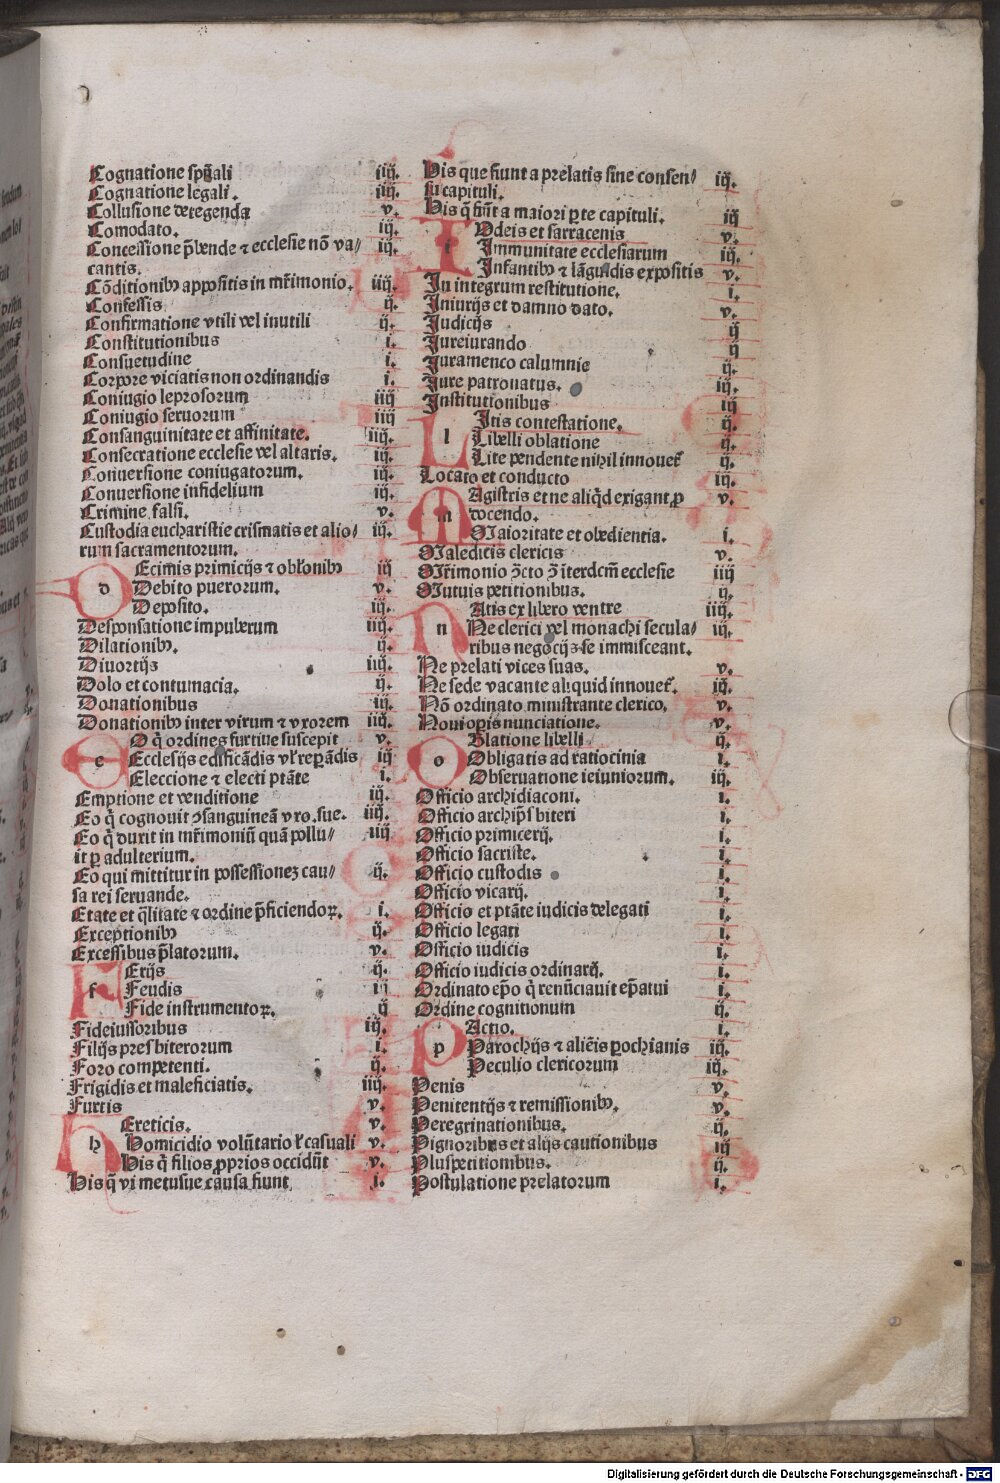 Cognatione sp̄uali iiij.
Cognatione legali. iiij.
Collusione detegenda v.
Comodato. iij.
Concessione p̄bende ⁊ ecclesie nō va⸗ iij.
cantis.
Cōditionibꝰ appositis in mr̄imonio. iiij.
Confessis ij.
Confirmatione vtili vel inutili ij.
Constitutionibus i.
Consuetudine i.
Corpore viciatis non ordinandis i.
Coniugio leprosorum iiij
Coniugio seruorum iiij
Consanguinitate et affinitate. iiij.
Consecratione ecclesie vel altaris. iij.
Conuersione coniugatorum. iij.
Conuersione infidelium iij.
Crimine falsi. v.
Custodia eucharistie crismatis et alio⸗ iij.
rum sacramentorum.
d Ecimis primicijs ⁊ oblonibꝰ iij
Debito puerorum. v.
Deposito. iij.
Desponsatione impuberum iiij.
Dilationibꝰ. ij.
Diuortijs iiij.
Dolo et contumacia. ij.
Donationibus iij.
Donationibꝰ inter virum ⁊ vxorem iiij.
e O q̄ ordines furtiue suscepit v.
Ecclesijs edificādis vl' reꝑandis iij
Eleccione ⁊ electi ptāte i.
Emptione et venditione iij.
Eo q̄ cognouit ꝯsanguineā vxo. sue. iiij.
Eo q̄ duxit in mr̄imoniū quā pollu⸗ iiij
it ꝑ adulterium.
Eo qui mittitur in possessionez cau⸗ ij.
sa rei seruande.
Etate et q̄litate ⁊ ordine p̄ficiendoꝝ. i.
Exceptionibꝰ ij.
Excessibus p̄latorum. v.
f Erijs ij.
Feudis iij
Fide instrumentoꝝ. ij
Fideiussoribus iij.
Filijs presbiterorum i.
Foro competenti. ij.
Frigidis et maleficiatis. iiij.
Furtis v.
h Ereticis. v.
Homicidio volūtario l' casuali v.
His q̄ filios ꝓprios occidūt v.
His q̄ vi metusue causa fiunt i.
His que fiunt a prelatis sine consen⸗ iij.
su capituli.
His q̄ fiūt a maiori ꝑte capituli. iij
i Udeis et sarracenis v.
Immunitate ecclesiarum iij.
Infantibꝰ ⁊ lāguidis expositis v.
In integrum restitutione. i.
Iniurijs et damno dato. v.
Iudicijs ij
Iureiurando ij
Iuramenco calumnie ij.
Iure patronatus. iij.
Institutionibus iij
l Itis contestatione. ij.
Libelli oblatione ij.
Lite pendente nihil innouet̄ ij.
Locato et conducto iij.
m Agistris et ne aliq̄d exigant ꝓ v.
docendo.
Maioritate et obedientia. i.
Maledictis clericis v.
Mr̄imonio ꝯcto ꝯ iterdcm̄ ecclesie iiij
Mutuis petitionibus. ij.
n Atis ex libero ventre iiij.
Ne clerici vel monachi secula⸗ iij.
ribus negocijs se immisceant.
Ne prelati vices suas. v.
Ne sede vacante aliquid innouet̄. iij.
Nō ordinato ministrante clerico. v.
Noui opis nunciatione. v.
o Blatione libelli ij.
Obligatis ad ratiocinia i.
Obseruatione ieiuniorum. iij.
Officio archidiaconi. i.
Officio archip̄sbiteri i.
Officio primicerij. i.
Officio sacriste. i.
Officio custodis i.
Officio vicarij. i.
Officio et ptāte iudicis delegati i.
Officio legati i.
Officio iudicis i.
Officio iudicis ordinarij. i.
Ordinato ep̄o q̄ renūciauit ep̄atui i.
Ordine cognitionum ij.
p Actio. i.
Parochijs ⁊ aliēis ꝑochianis iij.
Peculio clericorum iij.
Penis v.
Penitentijs ⁊ remissionibꝰ. v.
Peregrinationibus. ij.
Pignoribus et alijs cautionibus iij
Pluspetitionibus. ij.
Postulatione prelatorum i.
Digitalisierung gefördert durch die Deutsche Forschungsgemeinschaft - DFG